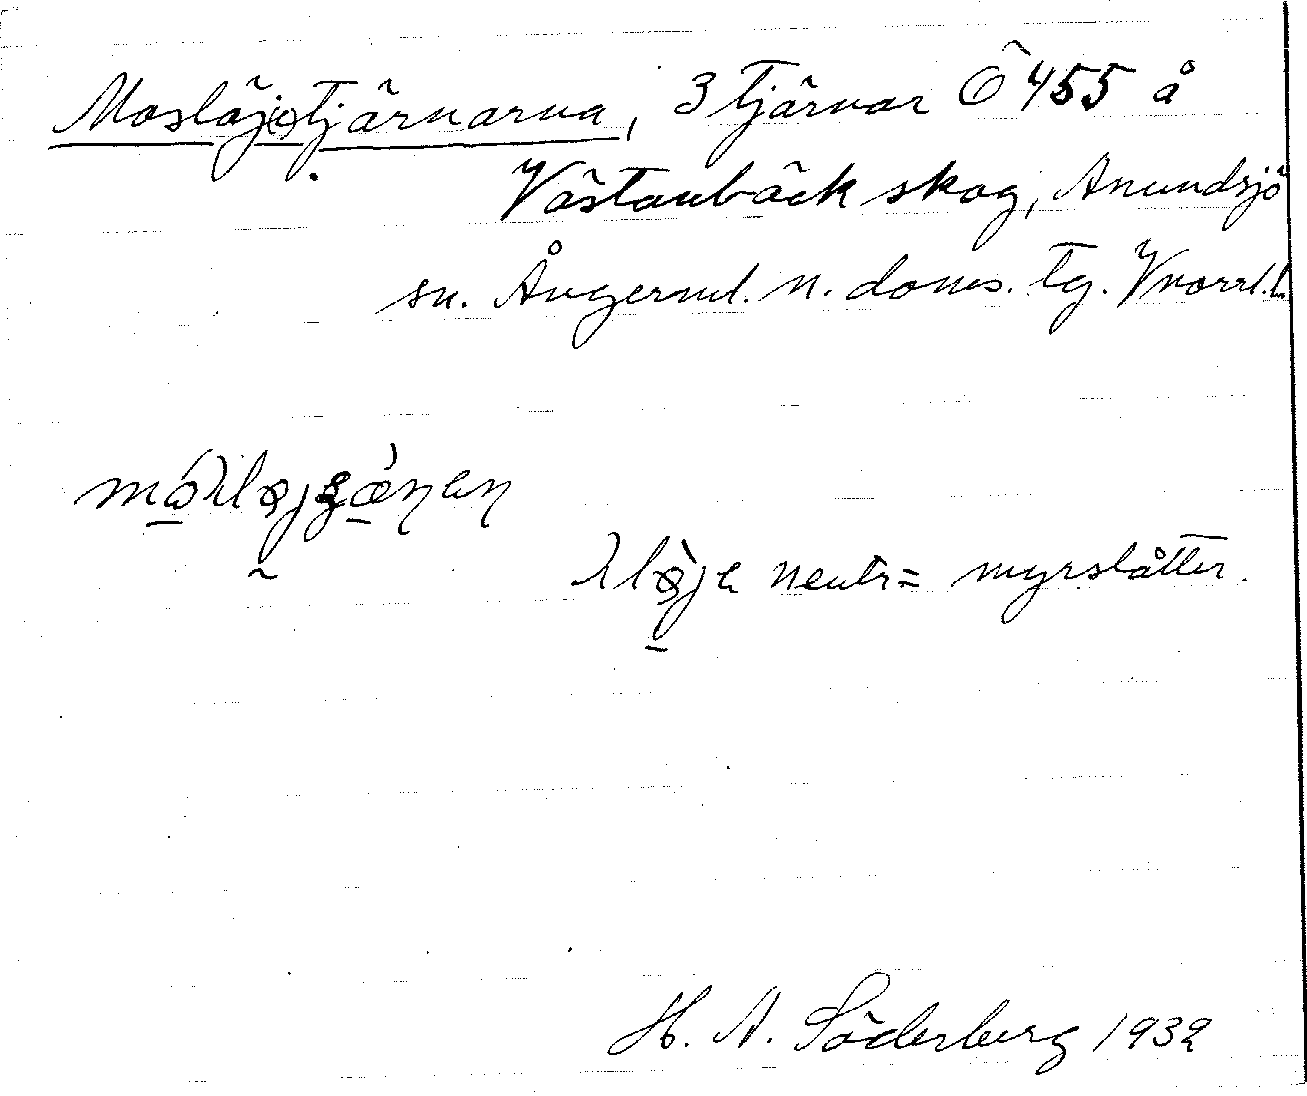 Moslöjetjärnarna, 3 tjärnar Ö 455 å
Västanbäck skog, Anundsjö
sn. Ångerml. n. doms. tg. Vnorrl. l.
neutr = myrslåtter.
H. A. Söderberg 1932